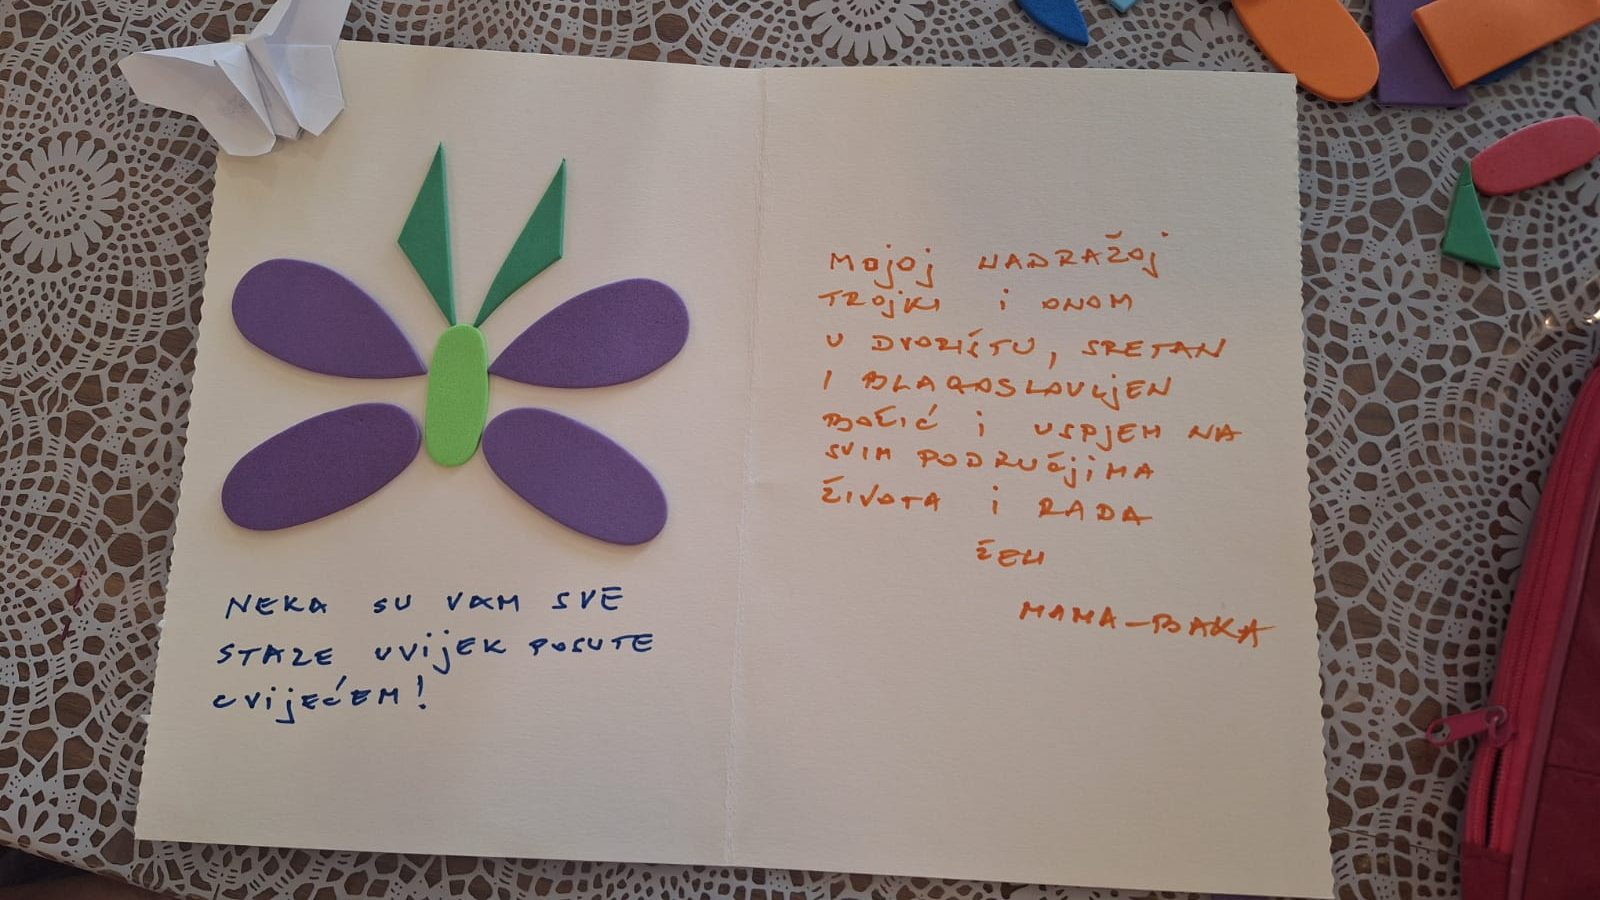 NEKA SU VAM SVE
STAZE UVIJEK POSUTE
CVIJEĆEM!
MOJOJ NADRAŽOJ
TROJKI I ONOM
U DVORIŠTU, SRETAN
I BLAGOSLOVLJEN
BOŽIĆ I USPJEH NA
SVIM PODRUČJIMA
ŽIVOTA I RADA
ŽELI
MAMA-BAKA